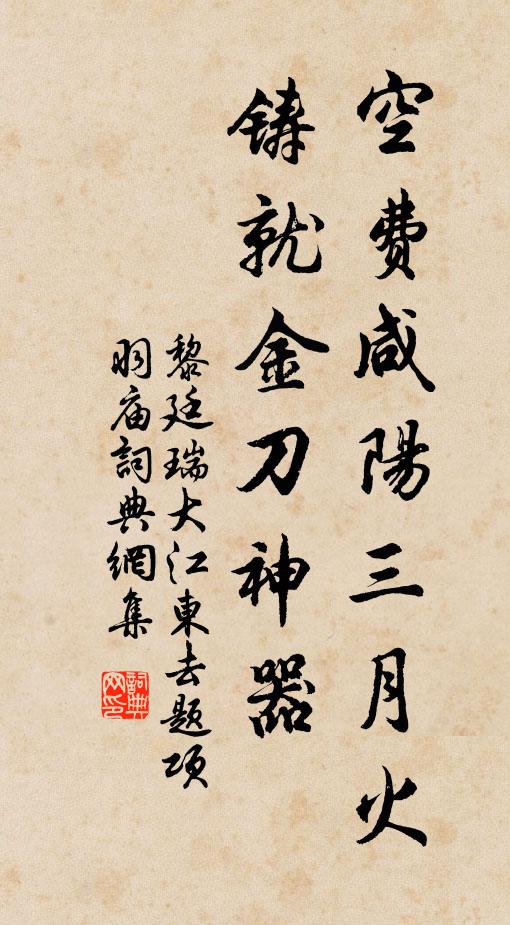 空費咸陽三月火
鋳就金刀神器
黎廷瑞大江東去題項
羽庙詞典網集
詞典
网印